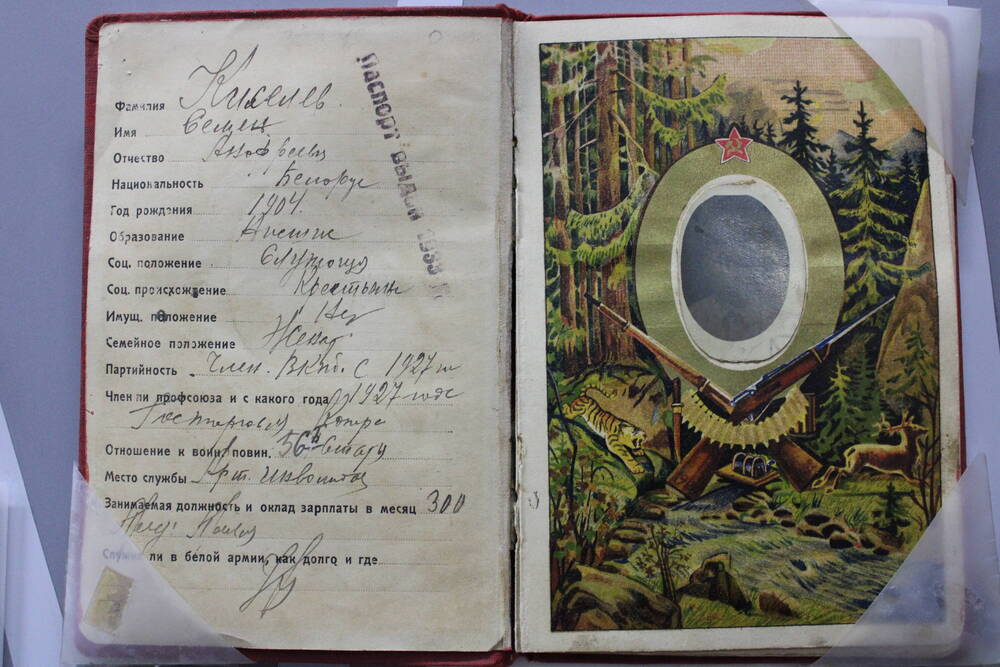 Фамилия Киселев
Имя Семен
Отчество
Национальность Белорус
Год рождения 1904.
Образование Низшее
Соц. положение Служащий
Соц. происхождение Крестьяни
Имущ. положение Нет
Семейное положение Женат
Партийность Член. ВКПб. с 1927 г
Член ли профсоюза и с какого года 1927 года
Отношение к воин. повин.
Место службы Арт. инвалидов
Занимаемая должность и оклад зарплаты в месяц 300
Служил ли в белой армии, как долго и где
Паспорт выдан 1933